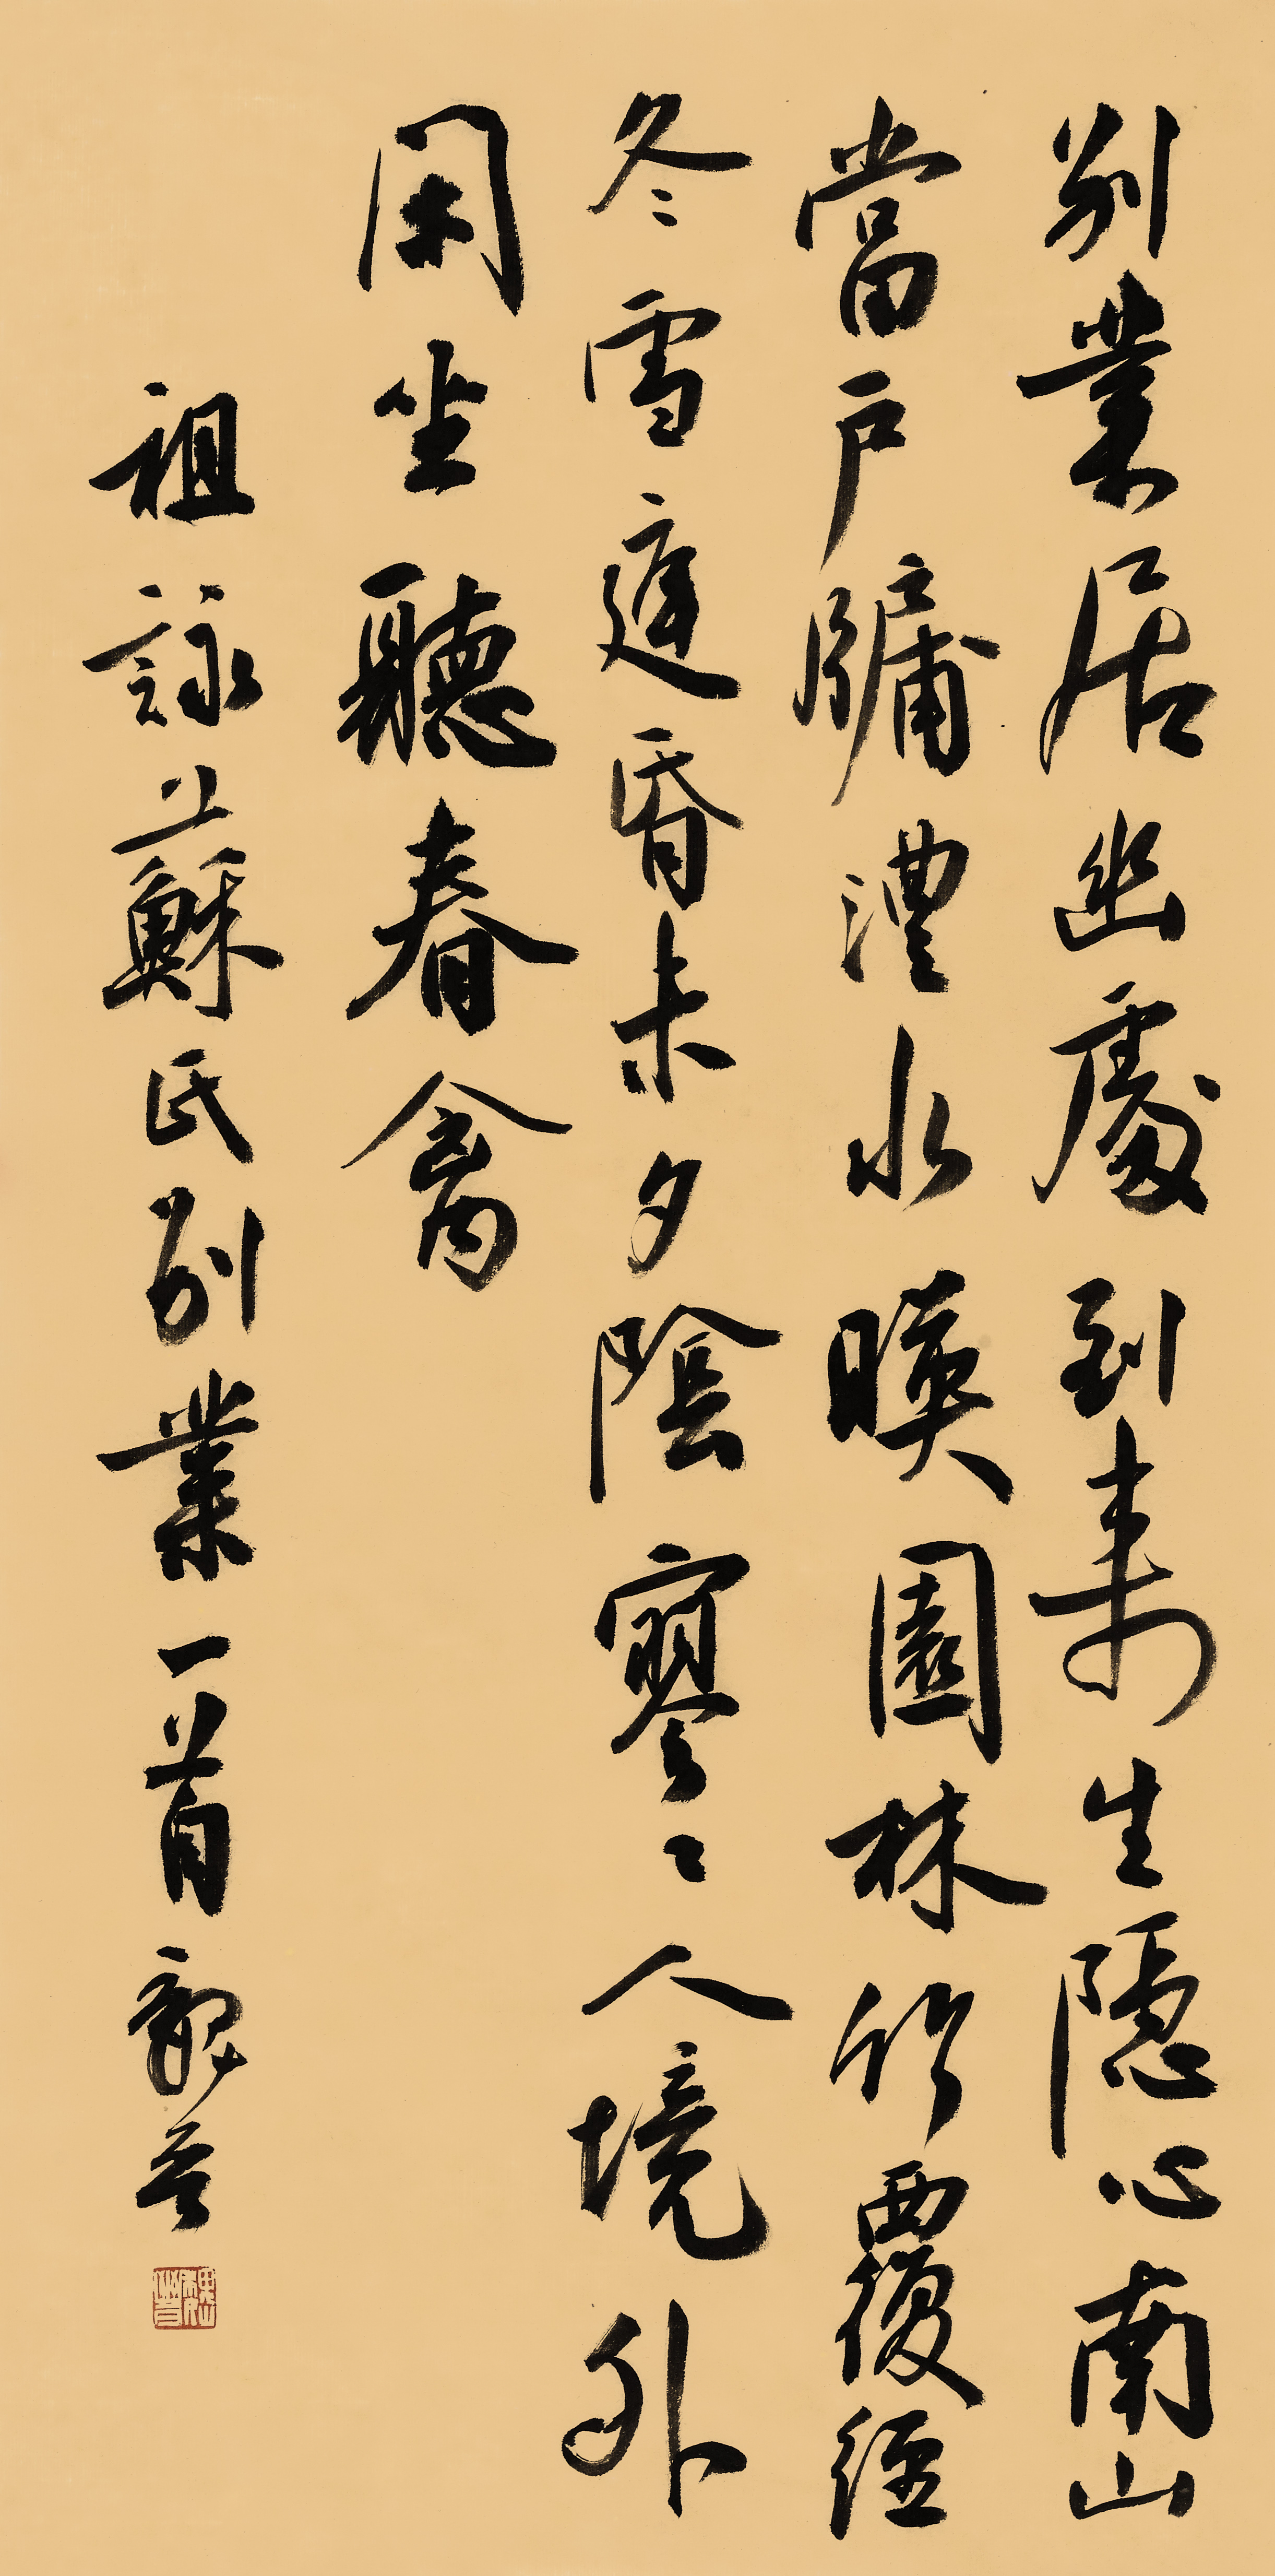 別業居幽處到来生隱心南山
當戶牖澧水暎園林竹覆經
冬雪庭昏未夕陰寥〻人境外
閑坐聽春禽
祖詠蘇氏別業一首